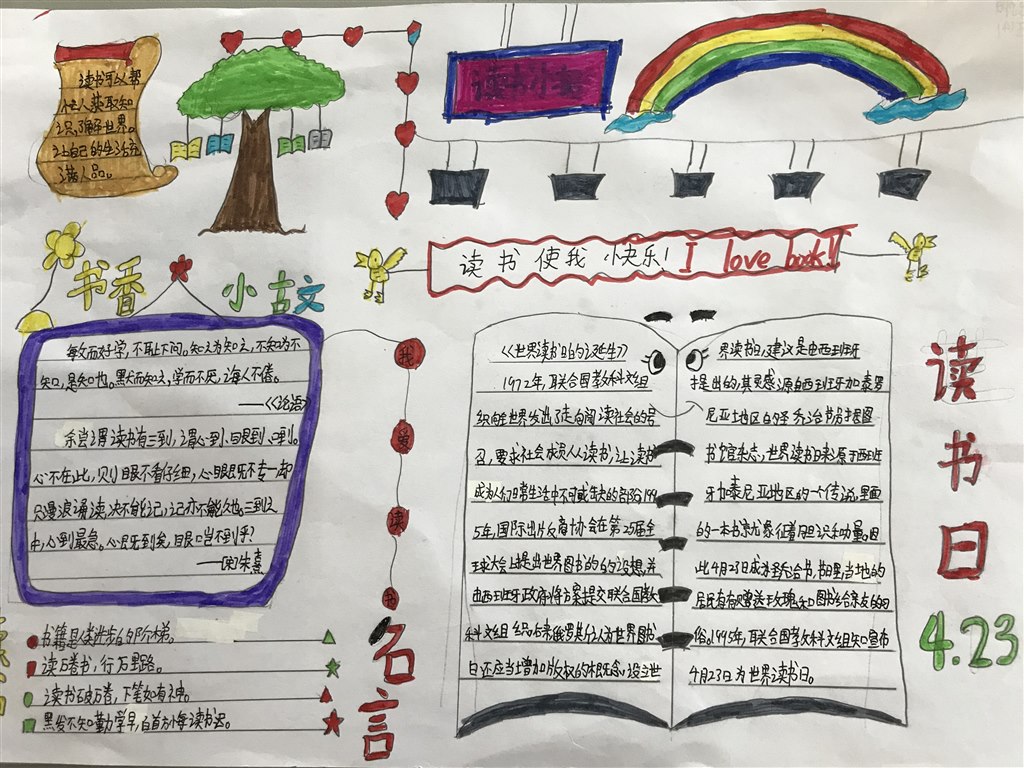 读书可以帮
个人获取知
识,了解世界。
让自己的生活充
满人品。
读书小报
读书使我快乐!I love book!
书香
小古文
敏而好学,不耻下问。知之为知之,不知为不
知,是知也。默而知之,学而不厌,诲人不倦。
——《论语》
余尝谓读书有三到,谓心到,眼到,口到。
心不在此,则眼不看仔细,心眼既不专一,却
只漫浪诵读,决不能记,记亦不能久也。三到之
中,心到最急。心既到矣,眼口岂不到乎?
——[宋]朱熹
我
爱
读
书
名言
书籍是人类进步的阶梯。
读万卷书,行万里路。
读书破万卷,下笔如有神。
黑发不知勤学早,白首方悔读书迟。
《世界读书日的诞生》
1972年,联合国教科文组
织向世界发出了走向阅读社会的号
召,要求社会成员人人读书,让读书
成为人们日常生活中不可或缺的部分199
5年,国际出版商协会在第25届全
球大会上提出世界图书的的设想,并
由西班牙政府将方案提交联合国教
科文组织。后来,俄罗斯认为世界图书
日还应当增加版权的概念,设立世
界读书日,建议是由西班牙
提出的,其灵感源自西班牙加泰罗
尼亚地区的圣乔治节。据图
书馆杂志,世界读书日来源于西班
牙加泰尼亚地区的一个传说,里面
的一本书就象征着胆识和力量。因
此4月23日成为圣乔治节,节日里,当地的
居民有赠送玫瑰和图书给亲友的的
俗。1995年,联合国教科文组织宣布
4月23日为世界读书日。
读书日
4.23